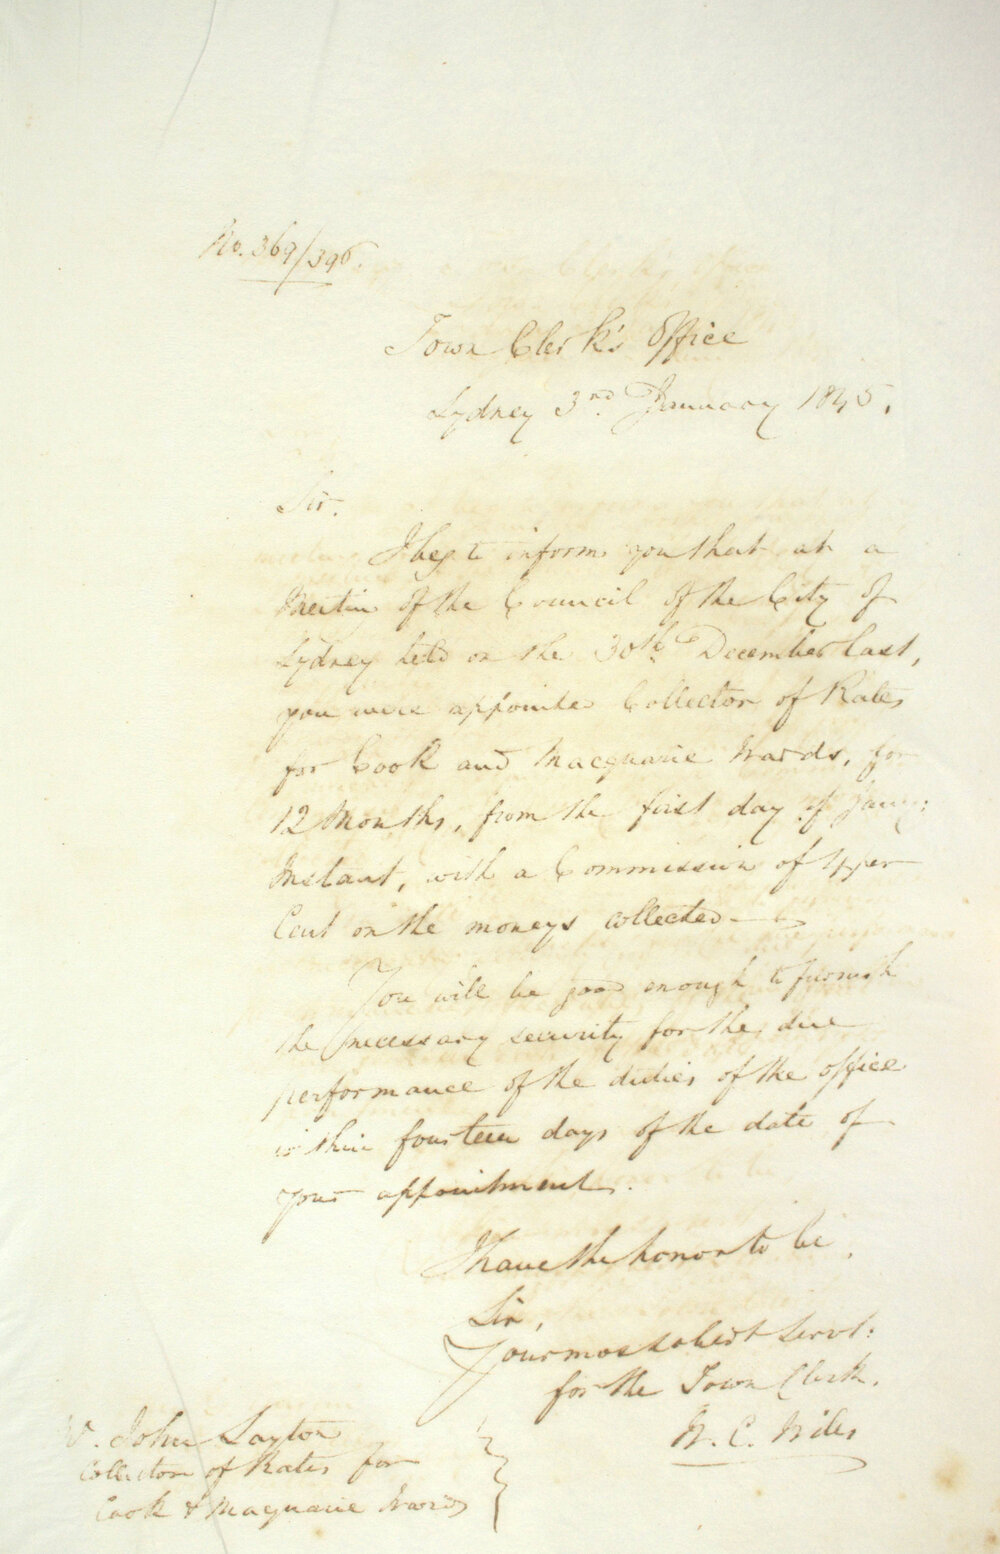 No. 369/396.
Town Clerk's Office
Sydney 3rd January 1845.
Sir.
I beg to inform you that at a
Meeting of the Council of the City of
Sydney held on the 30th December last,
you were appointed Collector of Rates
for Cook and Macquarie Wards, for
12 Months, from the first day of Jany:
Instant, with a Commission of 4 per
Cent on the moneys collected
You will be good enough to furnish
the necessary security for the due
performance of the duties of the office
within fourteen days of the date of
your appointment.
I have the honor to be,
Sir,
Your most obedt Servt:
for the Town Clerk.
W. C. Wills
John Layton
Collector of Rates for
Cook & Macquarie Wards